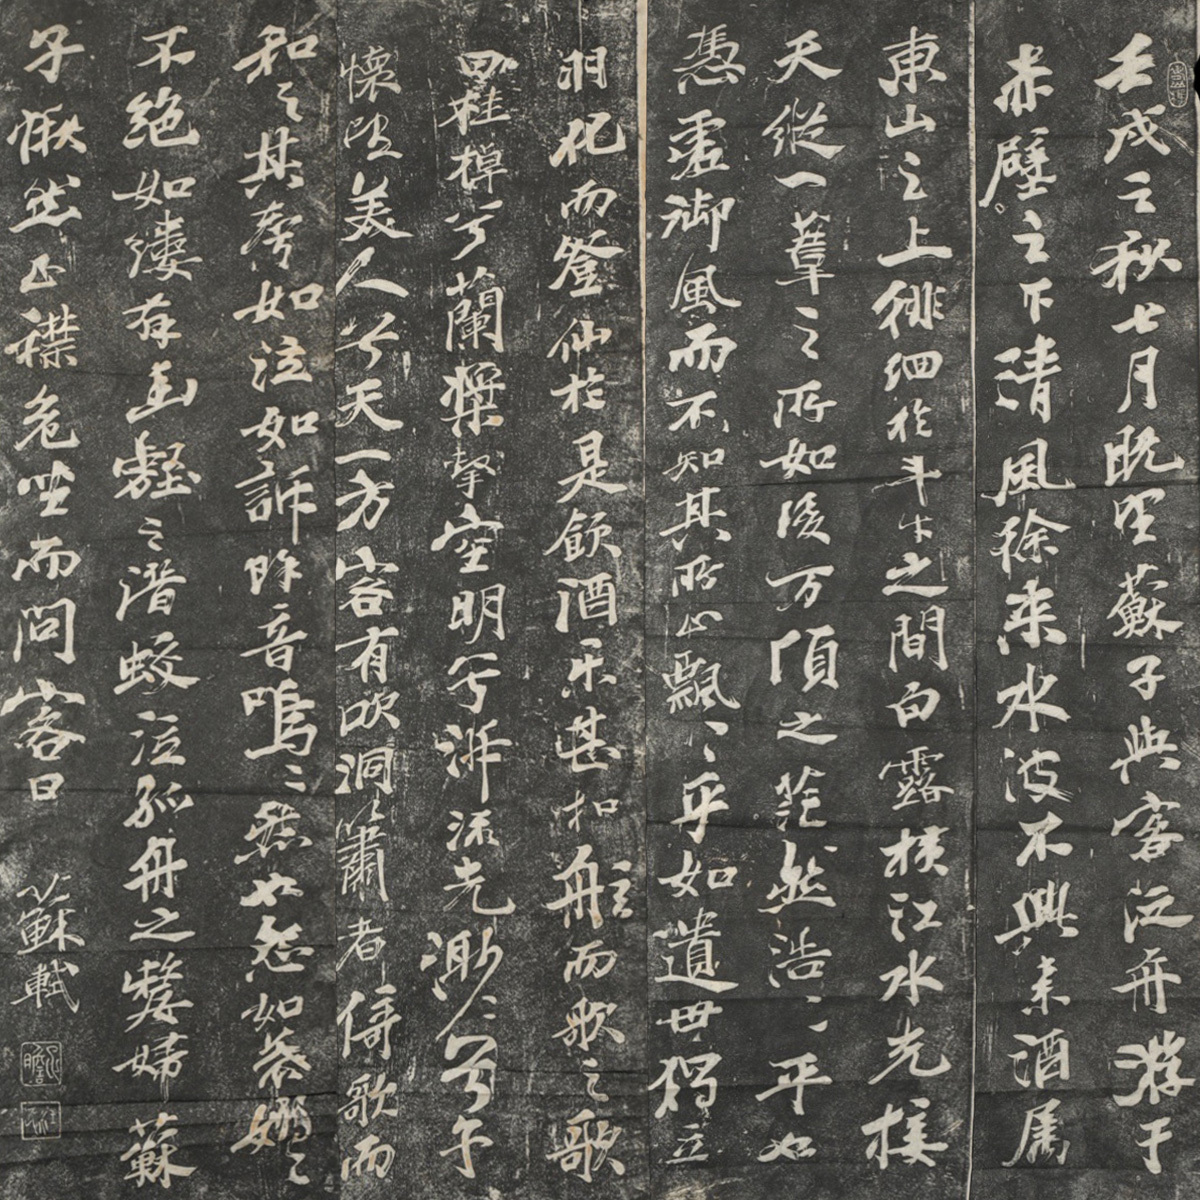 壬戌之秋七月既望蘇子與客泛舟游于
赤壁之下清風徐来水波不興酒属
東山之上徘徊於斗牛之間白露横江水光接
天縱一葦之所如凌万頃之茫然浩〻乎如
憑虚御風而不知其所止飄〻乎如遺世獨立
羽化而登仙於是飲酒乐甚扣舷而歌之歌
曰桂棹兮蘭槳擊空明兮泝流光渺〻兮予
懷望美人兮天一方客有吹洞簫者倚歌而
和之其如泣如訴音嗚〻然怨如慕嫋〻
不絶如縷有幽壑之潜蛟泣孤舟之嫠婦蘇
子愀然正襟危坐而問客曰
蘇軾